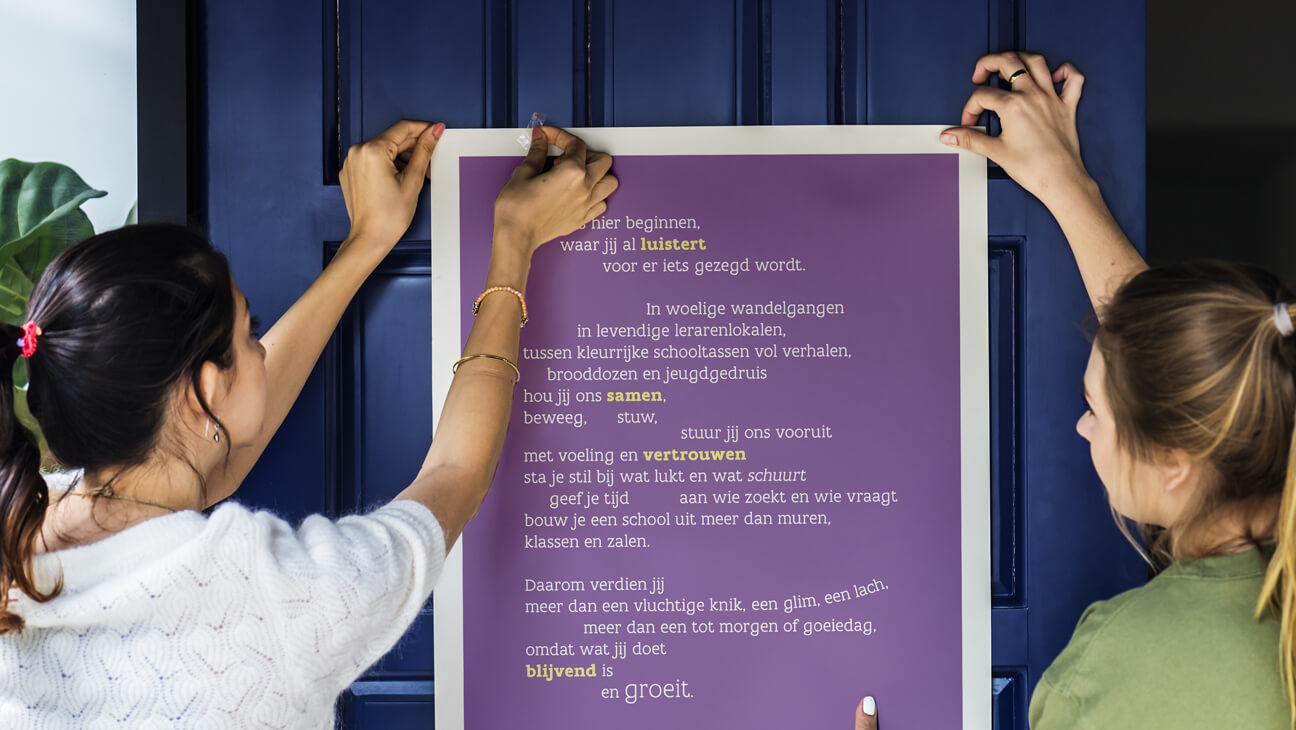 hier beginnen,
waar jij al luistert
voor er iets gezegd wordt.
In woelige wandelgangen
in levendige lerarenlokalen,
tussen kleurrijke schooltassen vol verhalen,
brooddozen en jeugdgedruis
hou jij ons samen,
beweeg, stuw,
stuur jij ons vooruit
met voeling en vertrouwen
sta je stil bij wat lukt en wat schuurt
geef je tijd aan wie zoekt en wie vraagt
bouw je een school uit meer dan muren,
klassen en zalen.
Daarom verdien jij
meer dan een vluchtige knik, een glim, een lach,
meer dan een tot morgen of goeiedag,
omdat wat jij doet
blijvend is
en groeit.